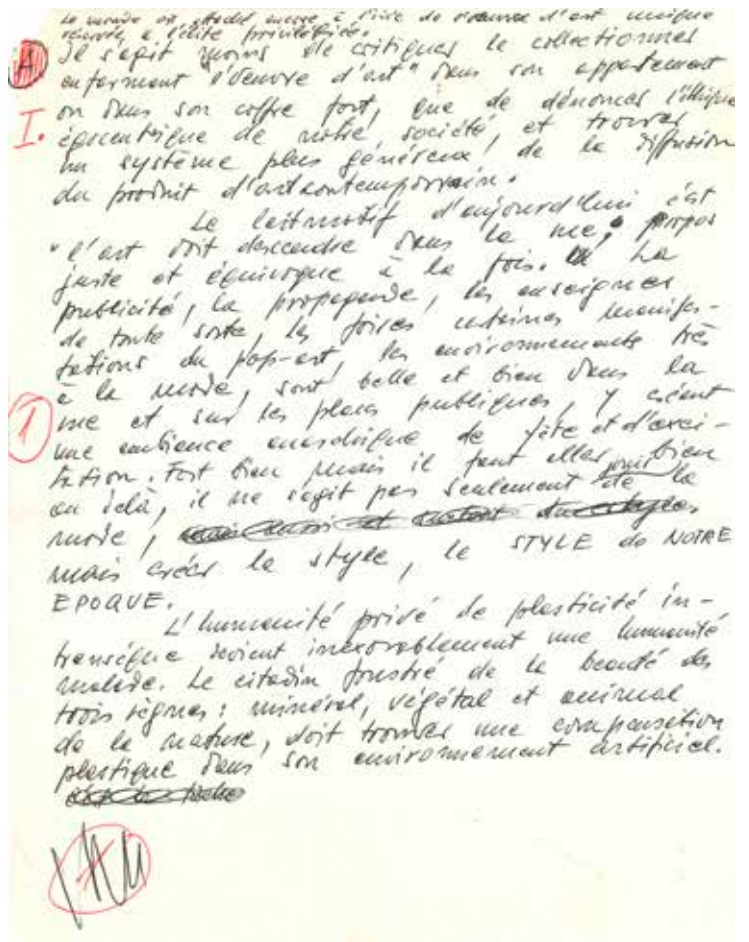 Le monde est encore à l'ère de l'œuvre d'art unique
réservée à l'élite privilégiée.
A
Il s'agit moins de critiquer le collectionneur
enfermant "l'œuvre d'art" dans son appartement
I.
ou dans son coffre fort, que de dénoncer l'éthique
égocentrique de notre société, et trouver
un système plus généreux, de la diffusion
du produit d'art contemporain.
Le leitmotif d'aujourd'hui c'est
"l'art doit descendre dans la rue", propos
juste et équivoque à la fois. La
publicité, la propagande, les enseignes
de toute sorte, les foires manifes-
tations du pop-art, les environnements très
à la mode, sont belle et bien dans la
1
rue et sur les places publiques, y créant
une ambience anarchique de fête et d'exci-
tation. Fort bien mais il faut aller bien
au delà, il ne sagit pas seulement de la
mode,
mais créer le style, le STYLE de NOTRE
EPOQUE.
L'humanité privé de plasticité in-
transéque devient inexorablement une humanité
malade. Le citadin frustré de la beauté des
trois règnes: minéral, végétal et animal
de la nature, doit trouver une compensation
plastique dans son environnement artificiel.